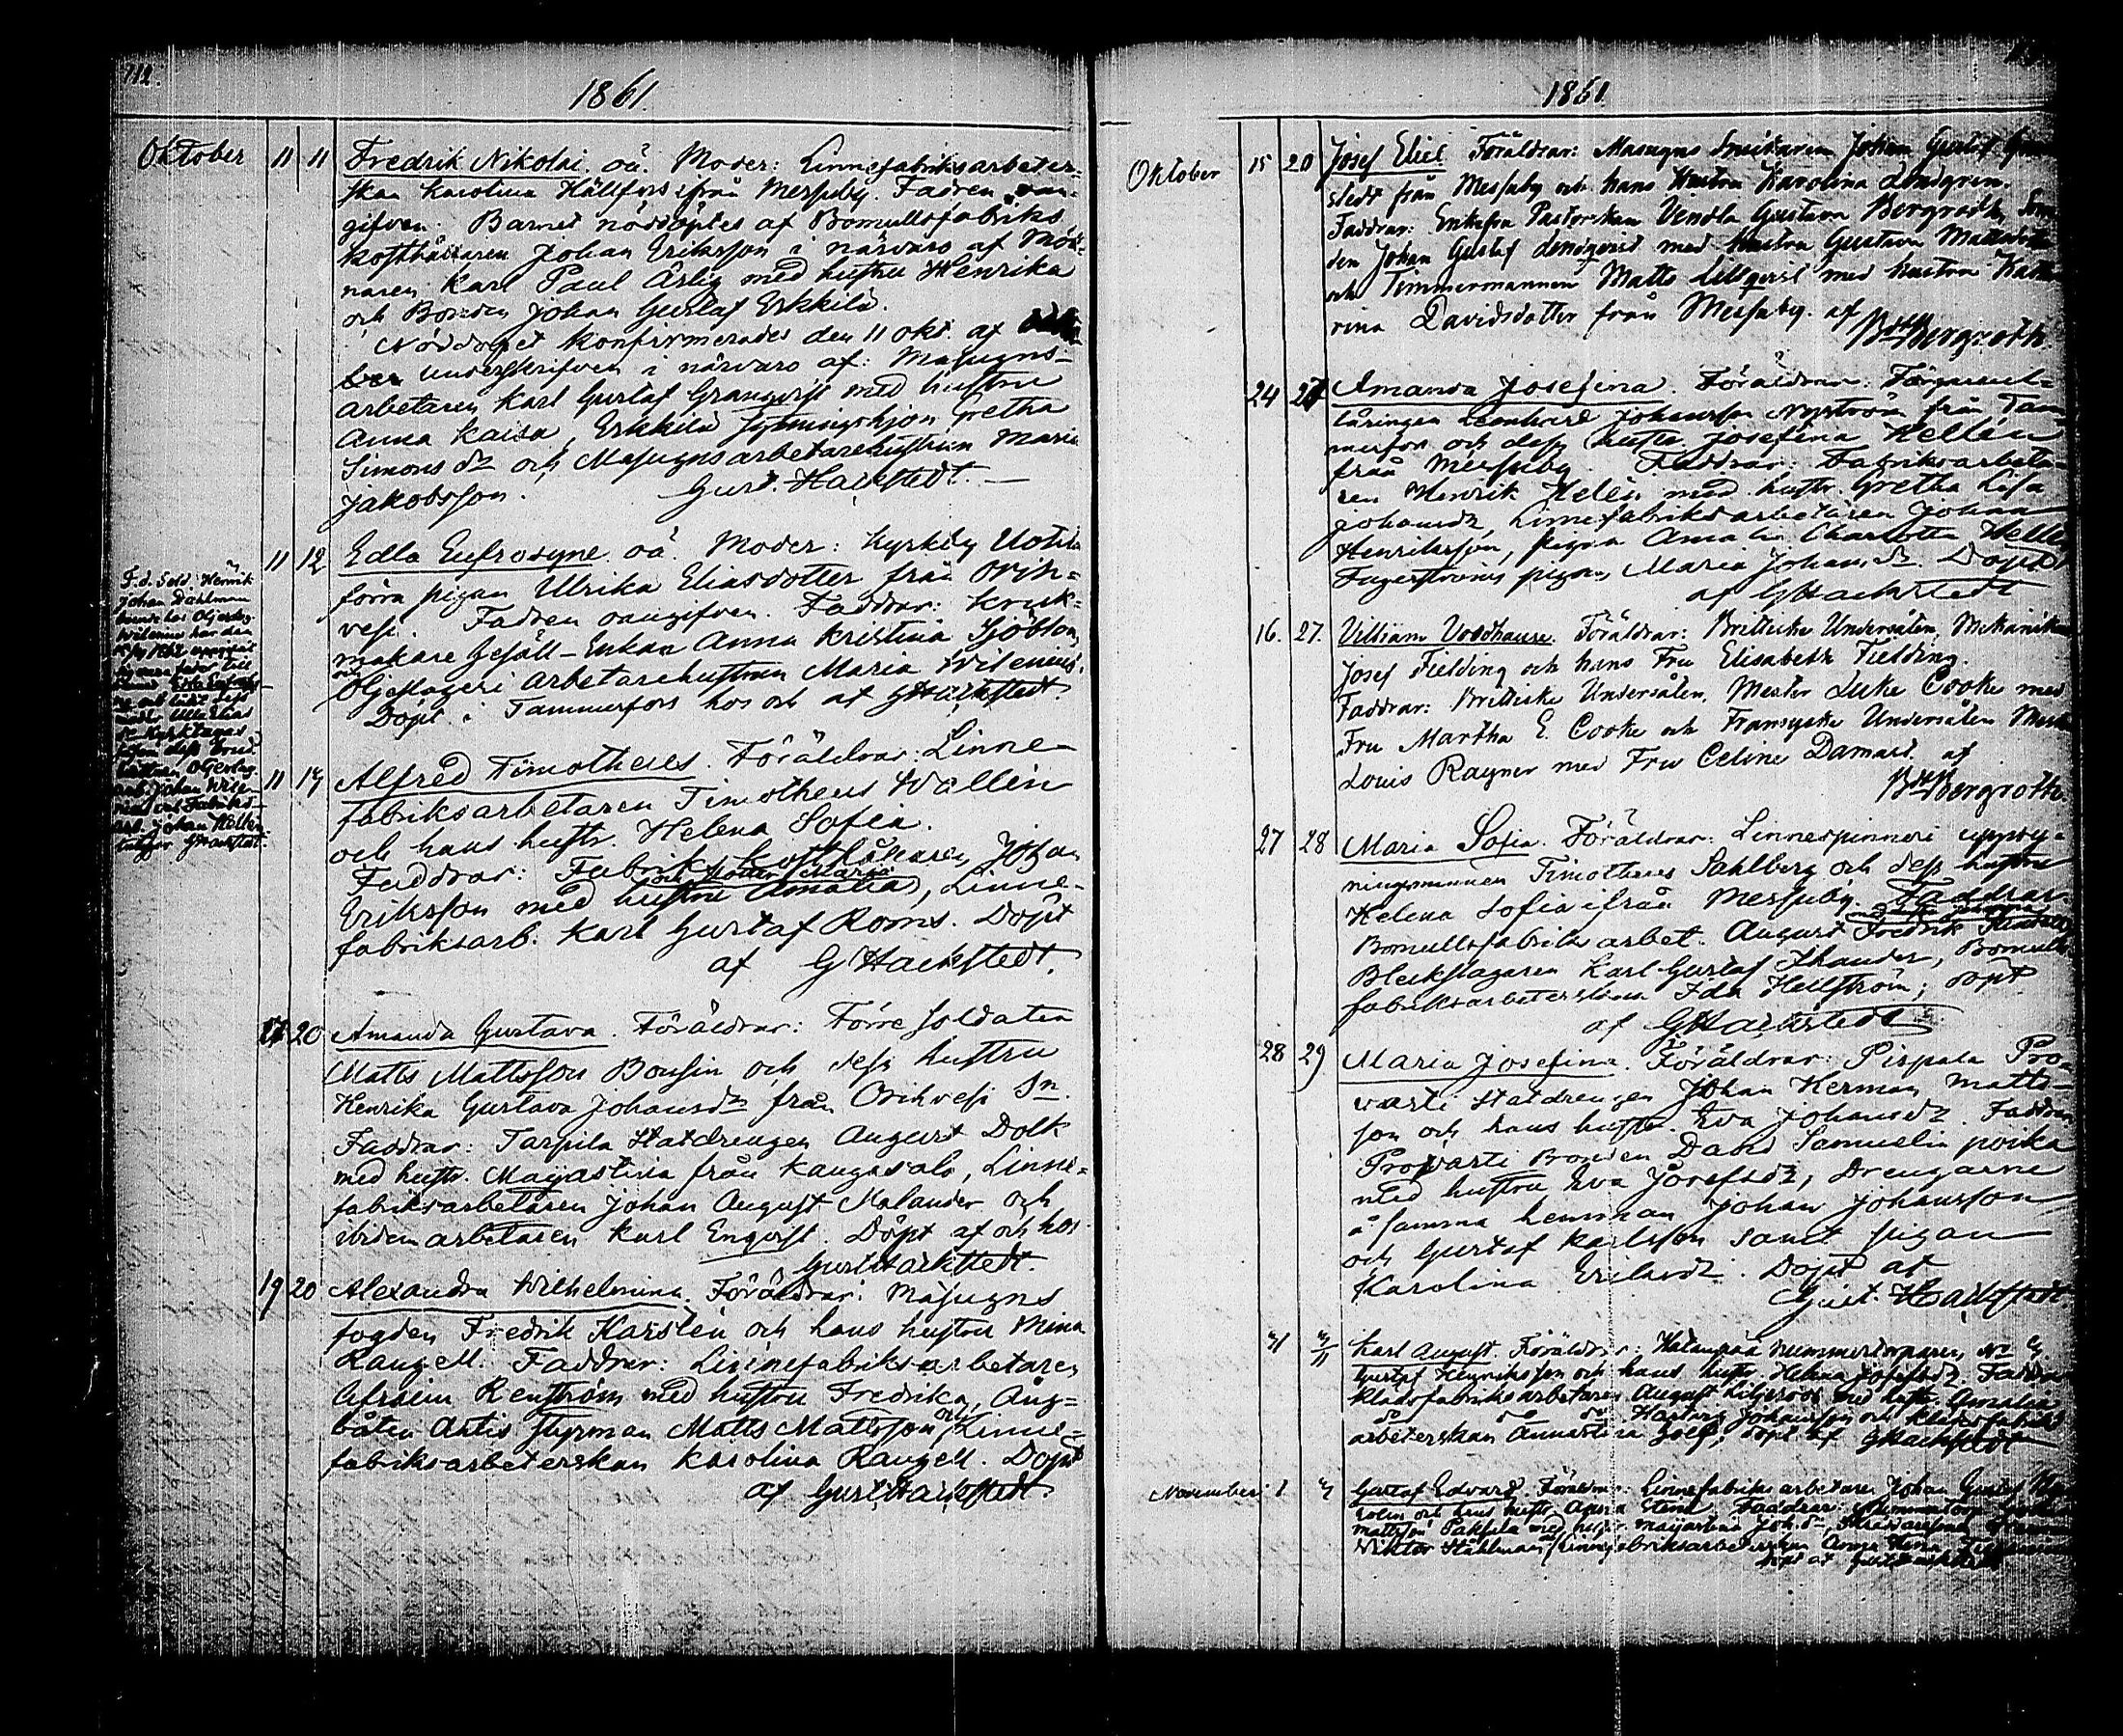 712.
1861
Oktober 11 11 Fredrik Nikolai. oä. Moder: Linnefabriksarbeter-
skan Karolina Hällfors ifrån Messuby. Fadren oan-
gifven. Barnet nöddöptes af Bomullsfabriks
kosthållaren Johan Eriksson i närvaro af Möl-
naren Karl Paul Ärlig med hustru Henrika
och Bonden Johan Gustaf Erkkilä.
Nöddopet konfirmerades den 11 okt. af
underskrifven i närvaro af: Masugns-
arbetaren Karl Gustaf Granqvist med hustru
Anna Kaisa, Erkkilä Sytningshjon Gretha
Simons dr och Masugnsarbetarehustrun Maria
Jakobsson. Gust. Hackstedt.
11 12 Edla Eufrosyne oä. Moder: Kyrkby Uotila
förra pigan Ulrika Eliasdotter från Orih-
vesi. Fadren oangifven. Faddrar: Kruk-
makare Gesäll-Enkan Anna Kristina Sjöblom,
och Oljeslageri arbetarehustrun Maria Wilenius.
Döpt i Tammerfors hos och af GHackstedt.
F. d. Sold. Henrik
Johan Dahlman
boende hos Oljeslag.
Wilenius har den
1862 uppgifvit
sig vara fader till
barnet Edla Eufrosy-
ne och likt dess
moder Ulla Elias
dr Kyrktagas
såsom dess brud
Oljeslag.
arb. Johan Wile-
nius och Fabriks-
arb. Johan Hellén
intygar GHackstedt.
11 14 Alfred Timotheus. Föräldrar: Linne-
fabriksarbetaren Timotheus Wallén
och hans hustr. Helena Sofia.
Faddrar: Fabriks kosthållaren Johan
och dotter Maria
Eriksson med hustru Amalia, Linne-
fabriksarb. Karl Gustaf Roms. Döpt
af G Hackstedt.
20 Amanda Gustava. Föräldrar: Förre soldaten
Matts Mattsson Bousin och dess hustru
Henrika Gustava Johansdr från Orihvesi Sn.
Faddrar: Tarpila Statdrengen August Dolk
med hustr. Majastina från Kangasala, Linne-
fabriksarbetaren Johan August Malander och
ibidem arbetaren Karl Enqvist. Döpt af och hos
Gust Hackstedt.
19 20 Alexandra Wilhelmina. Föräldrar: Masugns
fogden Fredrik Karstén och hans hustru Mina
Rangell. Faddrar: Linnefabriksarbetaren
Efraim Renström med hustru Fredrika, Ång-
båten Ahtis styrman Matts Mattsson och Linne-
fabriksarbeterskan Karolina Rangell. Döpt
af Gust. Hackstedt.
1861
Oktober 15 20 Josef Eliel Föräldrar: Masugns Smidaren Johan Gustaf
stedt från Messuby och hans Hustru Karolina Lindgren.
Faddrar: Enkefru Pastorskan Vendla Gustava Bergroth,
den Johan Gustaf Lindqvist med Hustru Gustava
och Timmermannen Matts Lillqvist med hustru Katha-
rina Davidsdotter från Messuby. af
Bergroth
24 27 Amanda Josefina. Föräldrar:
läringen Leonhard Johansson Nyström från Tam-
merfors och dess hustr. Josefina Hellén
från Messuby. Faddrar: Fabriksarbeta-
ren Henrik Helén med hustr. Gretha Lisa
Johansdr, Linnefabriksarbetaren Johan
Henriksson, pigan Amalia Charlotta Hellén
Fagerströms pigan Maria Johansdr. Döpt
af GHackstedt
16. 27. William Woodhouse. Föräldrar: Brittiske Undersåten, Mekanikern
Josef Fielding och hans Fru Elisabeth Fielding.
Faddrar: Brittiske Undersåten, Mester Luke Cooke med
Fru Martha E. Cooke och Fransyske Undersåten
Louis Rayner med Fru Celine Damard. af
Bergroth.
27 28 Maria Sofia. Föräldrar: Linnespinneri uppsy-
ningsmannen Timotheus Sahlberg och dess hustru
Helena Sofia ifrån Messuby. Faddrar:
Bomullsfabriks arbet. August Fredrik
Bleckslagaren Karl Gustaf Thander, Bomulls-
fabriksarbeterskan Ida Hellström; döpt
af GHackstedt
28 29 Maria Josefina. Föräldrar: Pispala Pro-
vasti Statdrengen Johan Herman Matts-
son och hans hustr. Eva Johansdr. Faddrar:
Provasti Bonden David Samuelin poika
med hustru Eva Josefsdr, Drengarne
å samma hemman Johan Johansson
och Gustaf Karlsson samt pigan
Karolina Eriksdr. Döpt af
Gust. Hackstedt.
31 3/11 Karl August. Föräldrar: Hatanpää nummertorparen No
Gustaf Henriksson och hans hustr. Helena Josefsdr. Faddrar
Klädsfabriksarbetaren August Liljeroos med hustr. Amalia
do do do Hartvig Johansson och klädsfabriks
arbeterskan Annastina Golf; döpt af GHackstedt
November 1 3 Gustaf Edvard. Föräldr: Linnefabriksarbetaren Johan Gustaf
och hans hustr. Anna Stina. Faddrar:
Mattsson Pakkila med hustr. Majastina Joh. dr,
Wiktor Ståhlman, Linnefabriksarbeterskan Anna Lena
Döpt af Gust Hackstedt